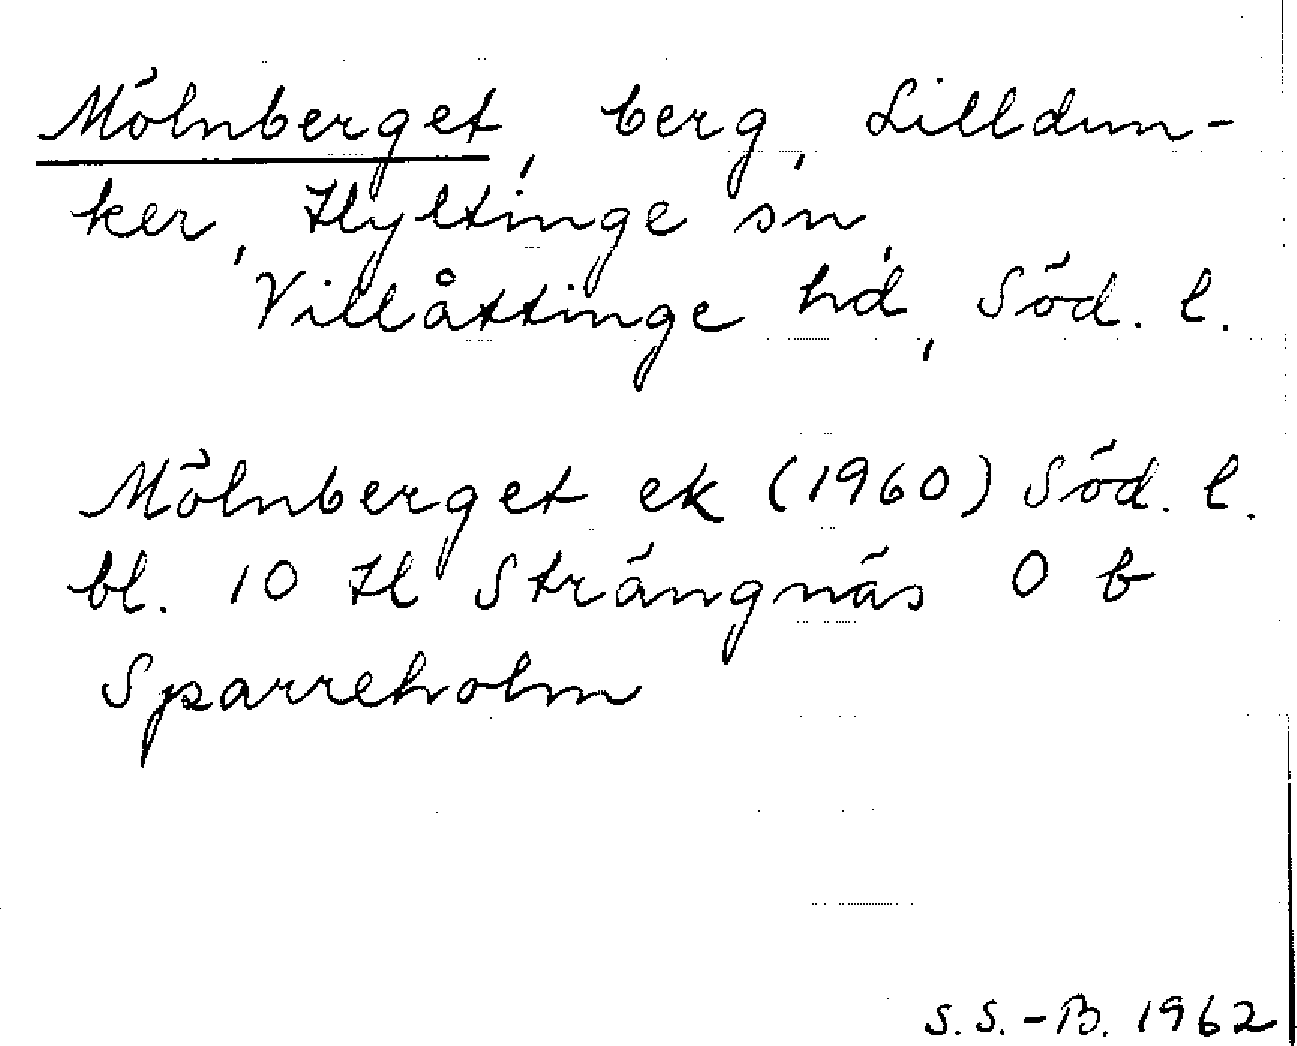 Mölnberget, berg, Lilldun-
ker, Hyltinge sn,
Villåttinge hd, Söd. l.
Mölnberget ek (1960) Söd. l.
bl. 10 H Strängnäs 0 b
Sparreholm
S.S.-B. 1962